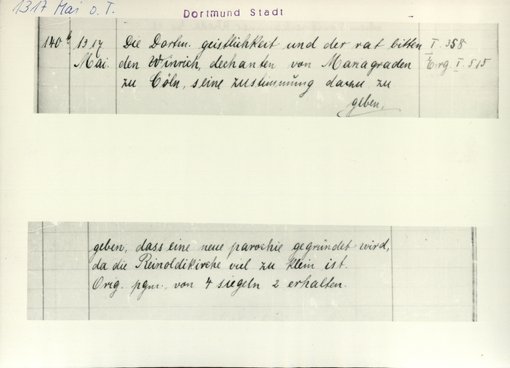 1317 Mai o. T.
Dortmund Stadt
140 b 1317 Die Dortm. geistlichkeit und der rat bitten I. 358
Mai. den Winrich, dechanten von Mariagraden Erg. I 515
zu Cöln, seine zustimmung dazu zu
geben,
geben, dass eine neue parochie gegründet wird,
da die Reinoldikirche viel zu klein ist.
Orig. pgm. von 4 siegeln 2 erhalten.